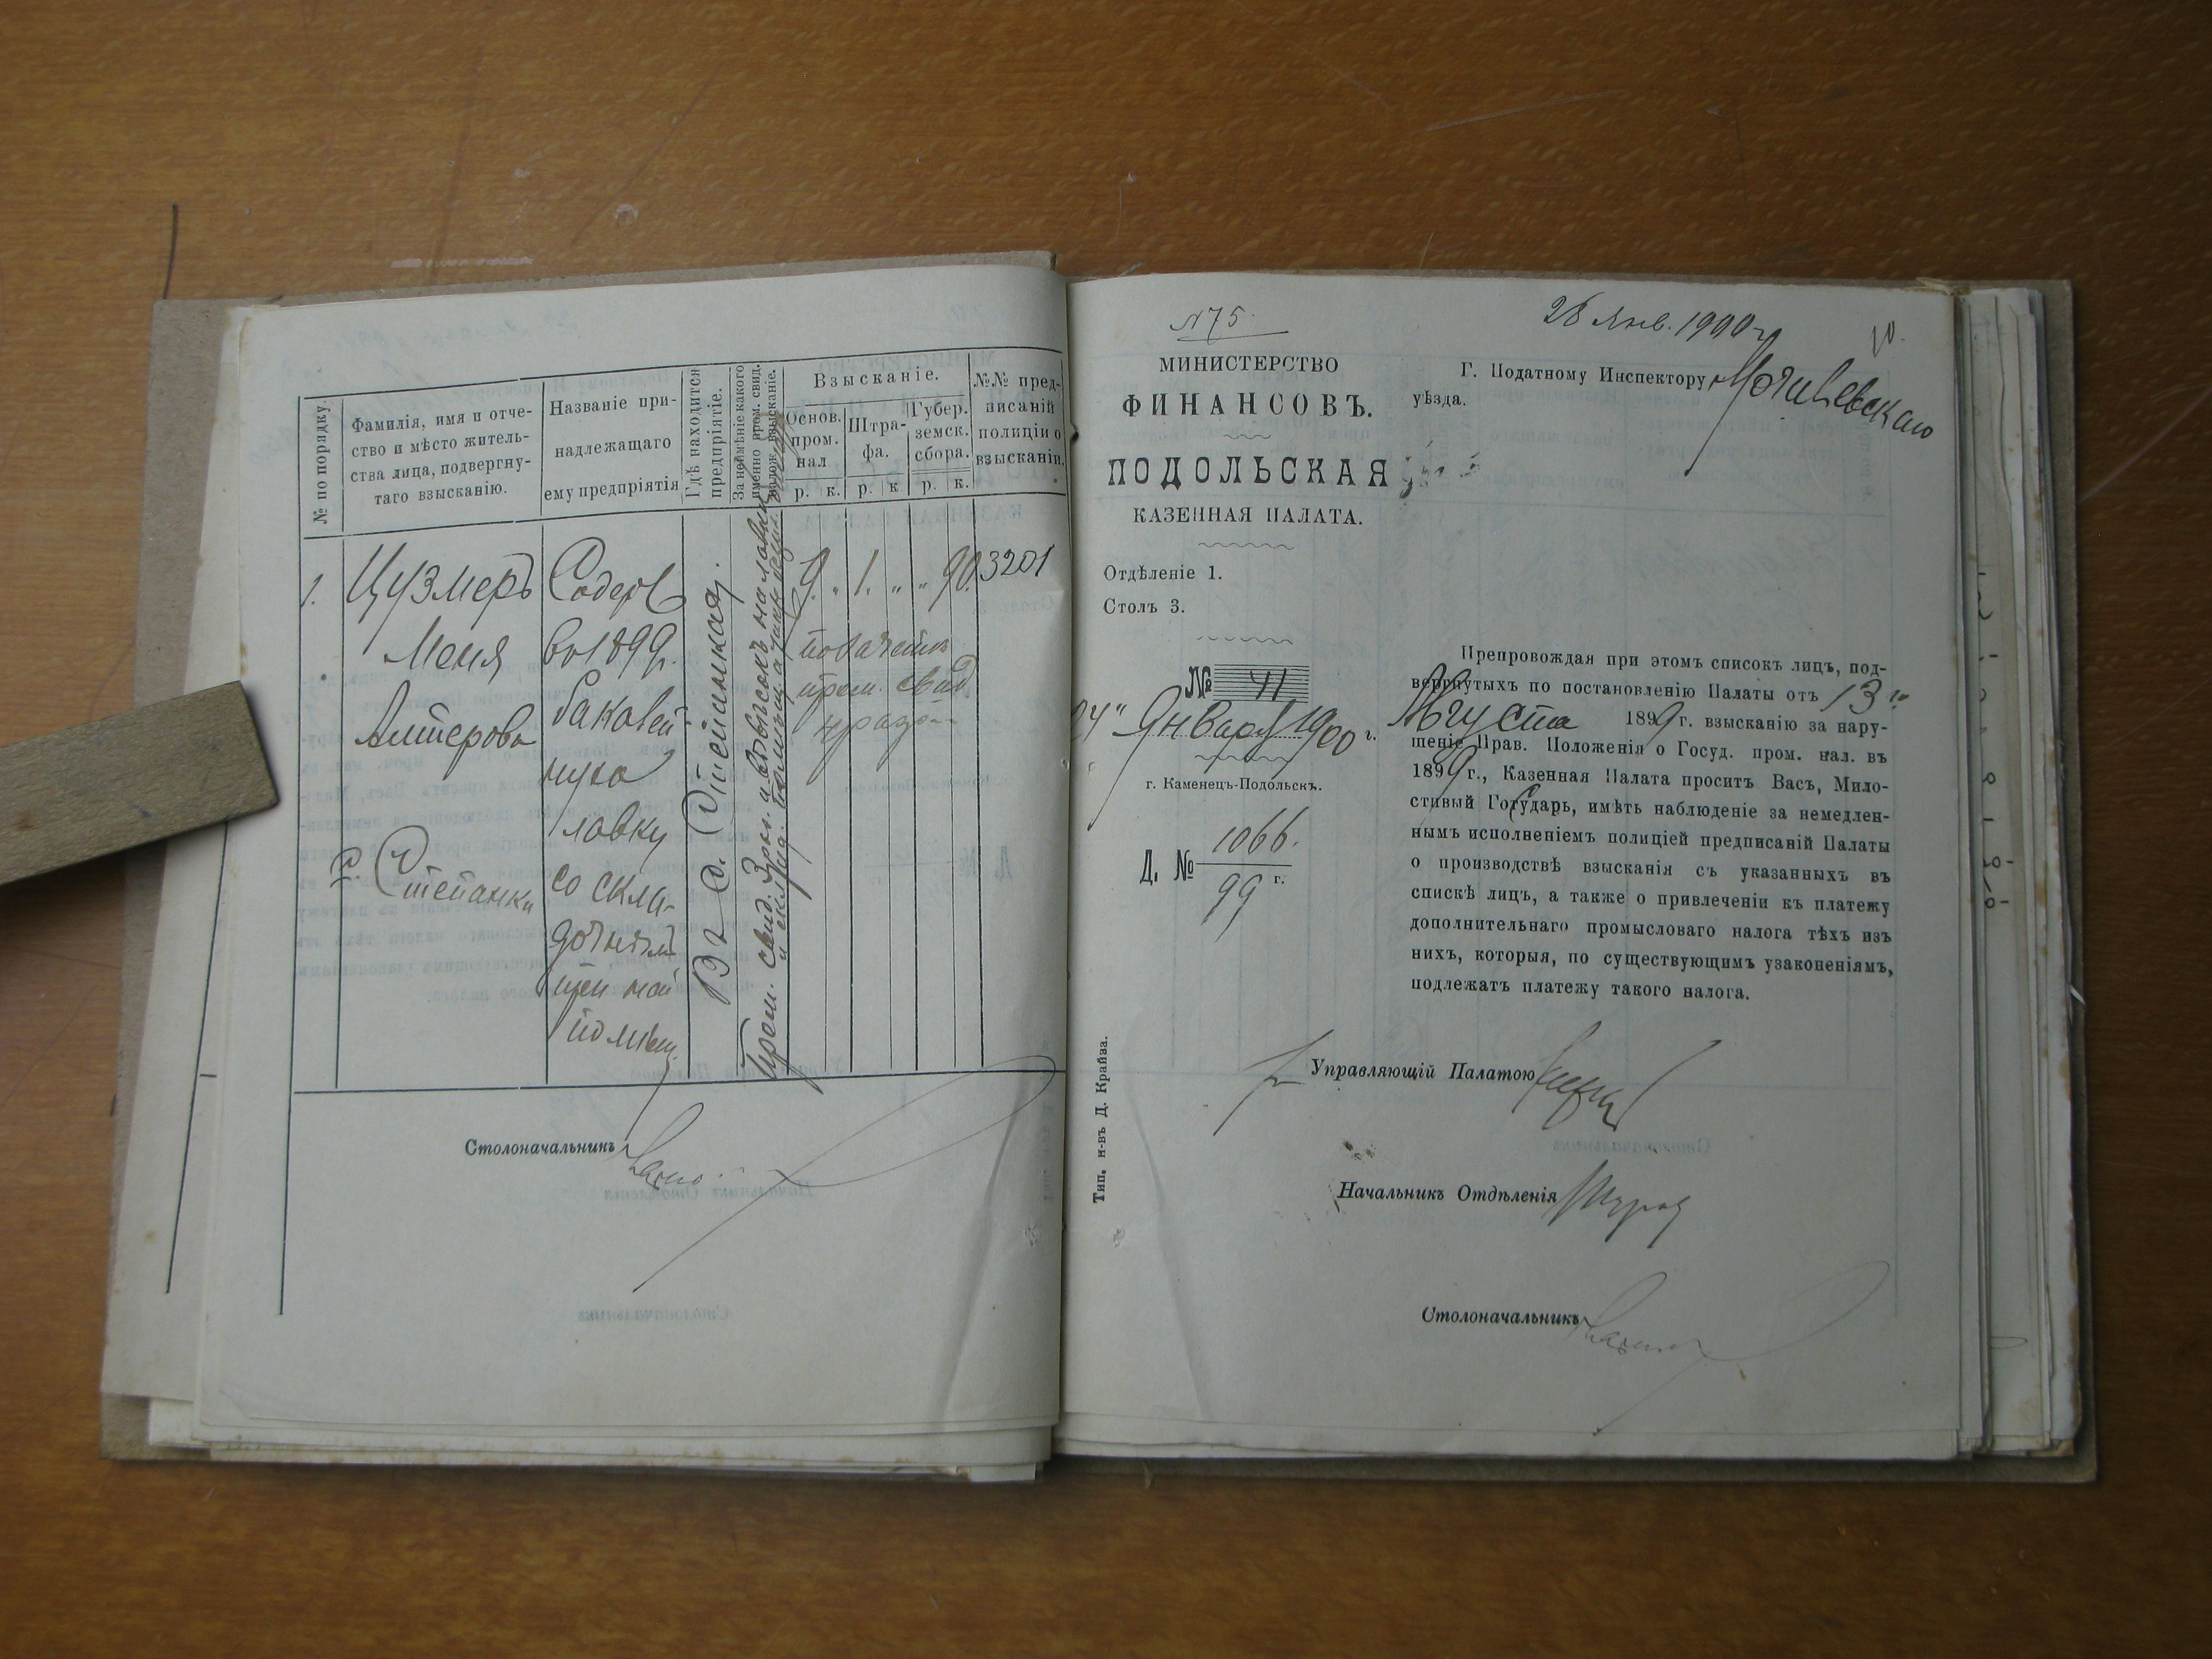 № по порядку.
Фамилія, имя и отче-
ство и мѣсто житель-
ства лица, подвергну-
таго взысканію.
Названіе при-
надлежащаго
ему предпріятія
Гдѣ находится
предпріятіе.
За неимѣніе какого
именно пром. свид.
налож. взысканіе.
Взысканіе.
Основ.
пром.
нал
Штра-
фа.
Губер.
земск.
сбора.
р. к. р. к р. к.
№№ пред-
писаній
полиціи о
взысканіи.
1.
Цузмеръ
Меня
Алтерова
с. Степанки
Содерж
въ 1899 г.
бакалей-
ную
лавку
со скла-
дочнымъ
помѣщ.
Въ с. Степанкахъ.
Пром. свид.
9. " 1. " " 90. 3201
пром. свид.
Столоначальникъ
№ 75.
МИНИСТЕРСТВО
ФИНАНСОВЪ.
ПОДОЛЬСКАЯ
КАЗЕННАЯ ПАЛАТА.
Отдѣленіе 1.
Столъ 3.
№ 41
24" Января 1900 г.
г. Каменецъ-Подольскъ.
Д. № 1066.
99 г.
Тип. н-въ Д. Крайза.
28 Янв. 1900 г.
10.
Г. Податному Инспектору Могилевскаго
уѣзда.
Препровождая при этомъ список лицъ, под-
вергнутыхъ по постановленію Палаты отъ 13"
Августа 1899 г. взысканію за нару-
шеніе Прав. Положенія о Госуд. пром. нал. въ
1899 г., Казенная Палата проситъ Васъ, Мило-
стивый Государь, имѣть наблюденіе за немедлен-
нымъ исполненіемъ полиціей предписаній Палаты
о производствѣ взысканія съ указанныхъ въ
спискѣ лицъ, а также о привлеченіи къ платежу
дополнительнаго промысловаго налога тѣхъ изъ
нихъ, которыя, по существующимъ узаконеніямъ,
подлежатъ платежу такого налога.
Управляющій Палатою
Начальникъ Отдѣленія
Столоначальникъ